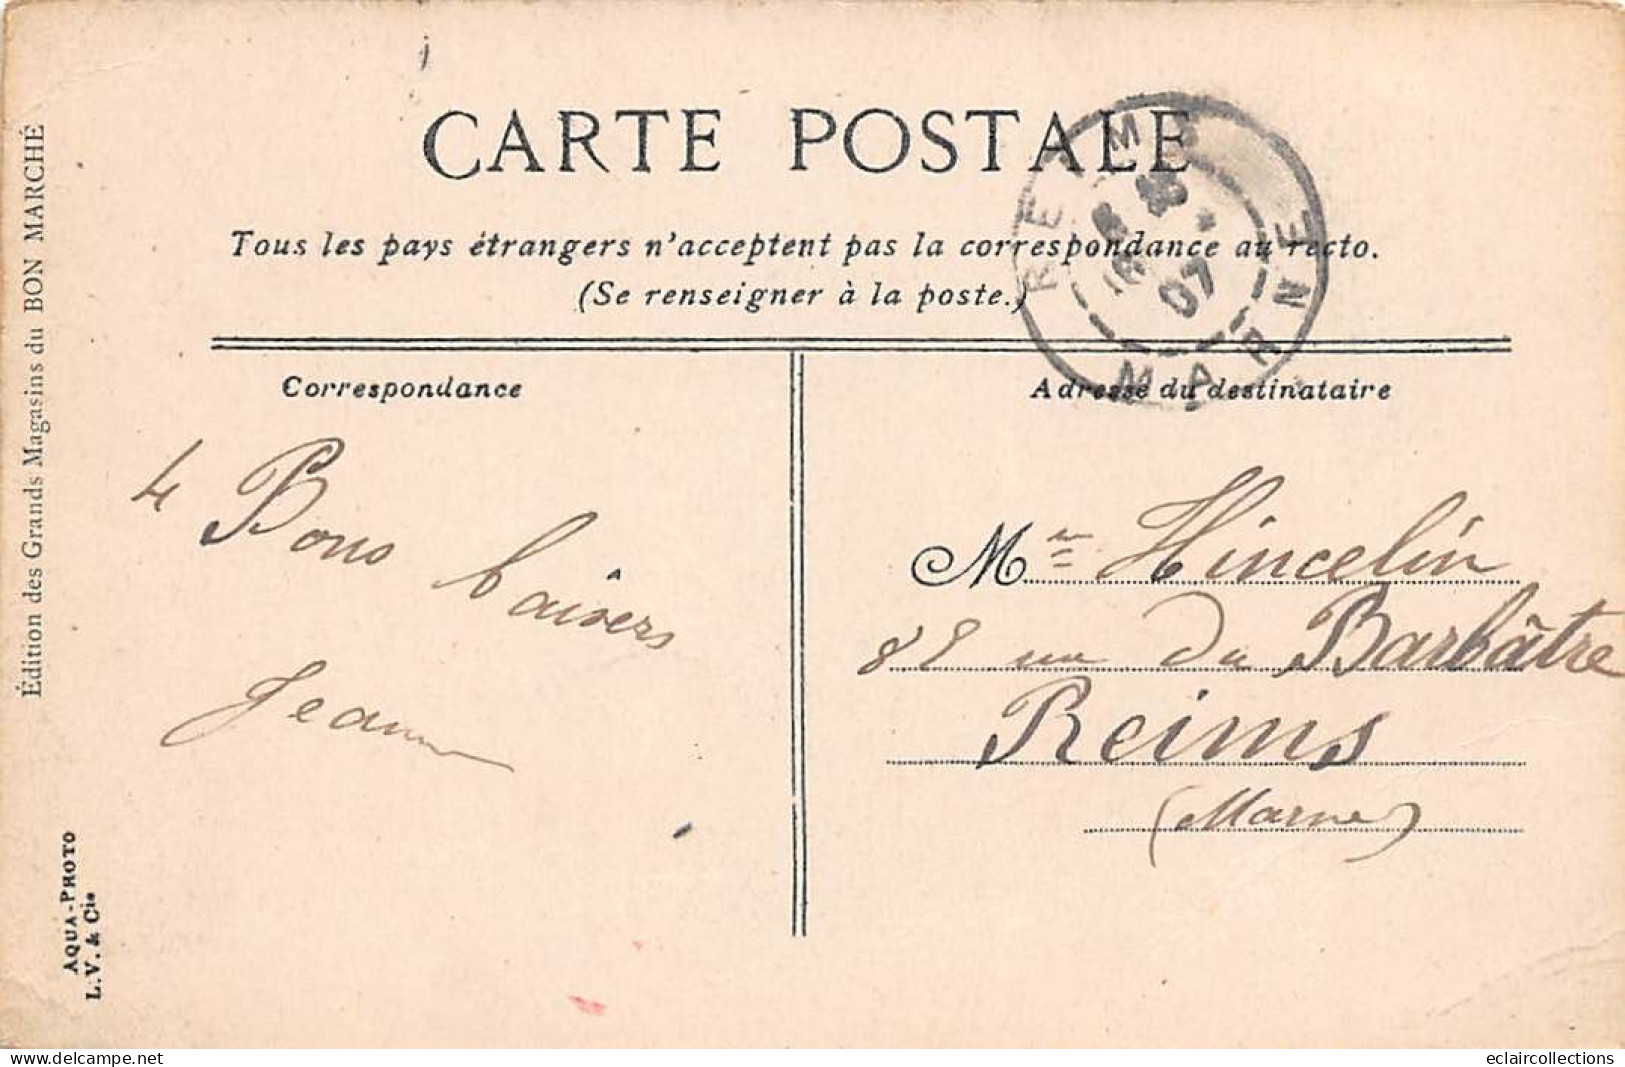 CARTE POSTALE
Tous les pays étrangers n'acceptent pas la correspondance au recto.
(Se renseigner à la poste.)
REIMS
07
MARNE
Édition des Grands Magasins du BON MARCHÉ
Correspondance
4 Bons baisers
Adresse du destinataire
Hincelin
88 rue du Barbâtre
Reims
(Marne)
AQUA-PHOTO
L.V. & Cie
delcampe.net
eclaircollections